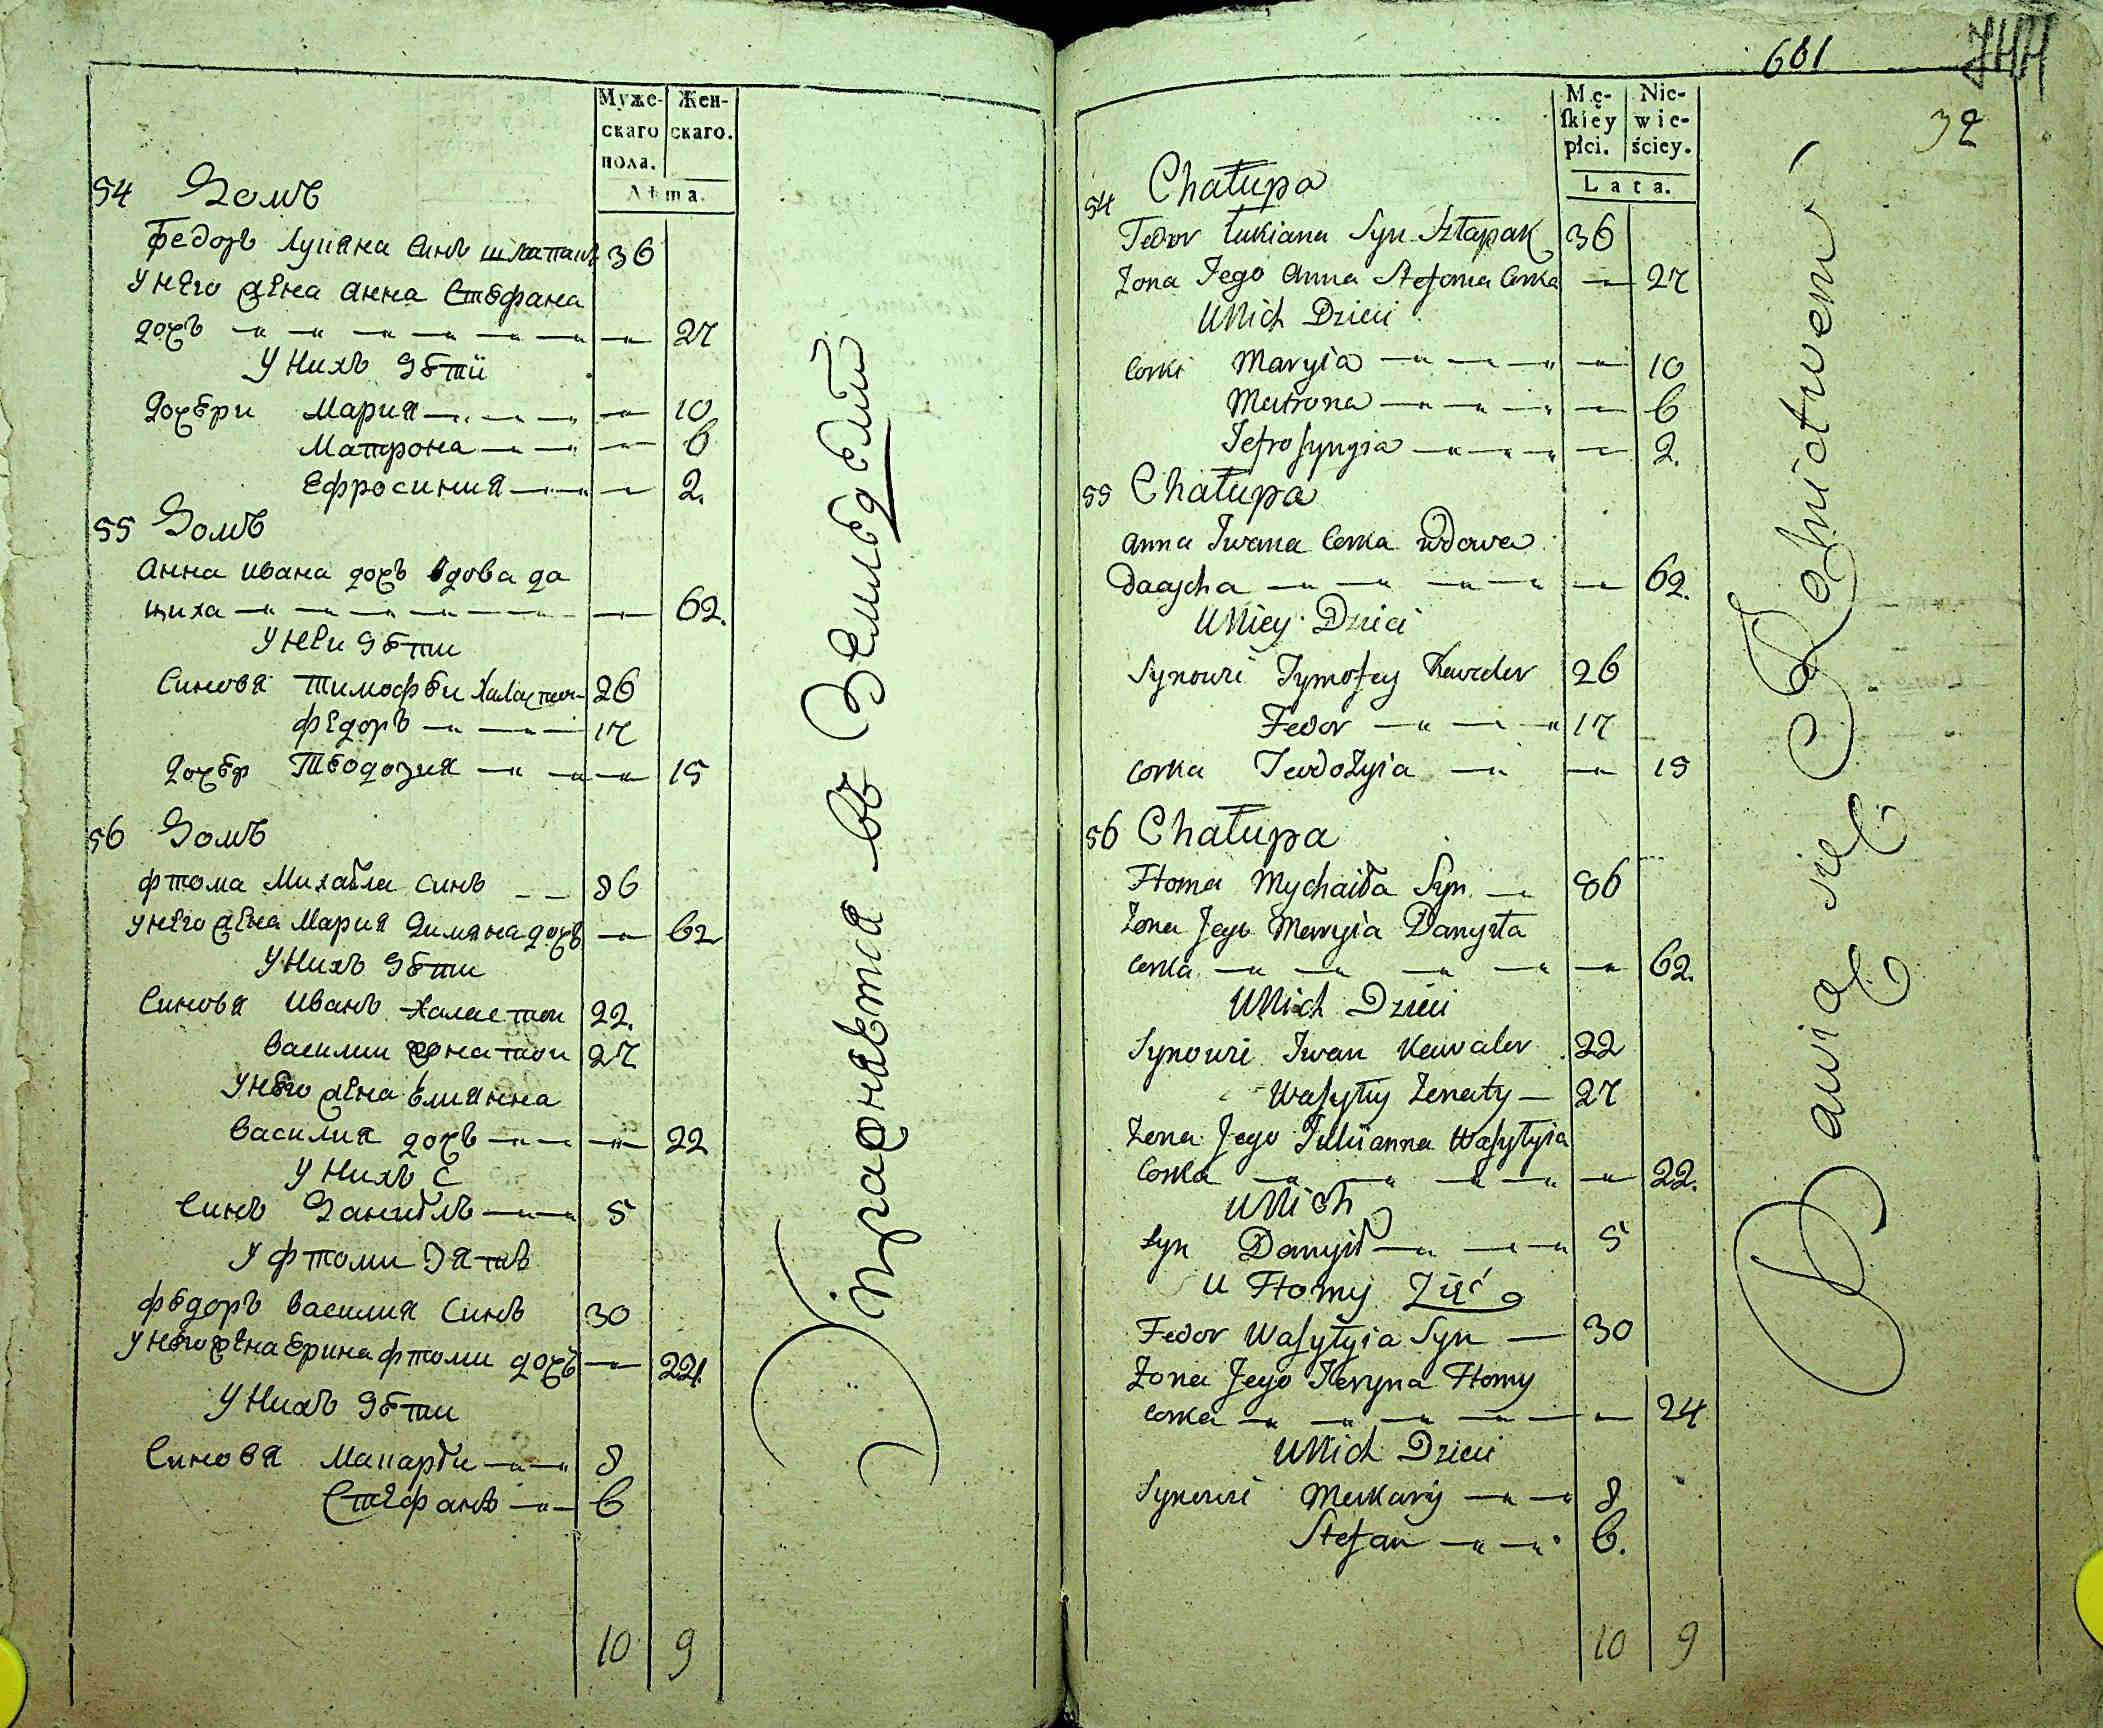 Муже-
скаго
пола.
Жен-
скаго.
Лѣта.
54 Домъ
Федоръ Лукяна Синъ шлапакъ 36
У него жена Анна Стефана
дочъ 27
У Нихъ Дѣти
Дочери Мария 10
Матрона 6
Ефросиния 2.
55 Домъ
Анна Ивана дочъ вдова да
щиха 62.
У Неи Дѣти
Синовя Тимофѣи Халастои 26
Федоръ 17
Дочер Теодозия 15
56 Домъ
Фтома Михаила Синъ 86
У него жена Мария Димяна дочъ 62
У Нихъ Дѣти
Синовя Иванъ Халастои 22.
Василии жонатои 27
У него жена
Василия дочъ 22
У Нихъ С
Синъ Даниилъ 5
У Фтоми Зять
Федоръ Василия Синъ 30
У него жена Ерина Фтоми дочъ 24
У Нихъ Дѣти
Синовя Макарѣи 8
Стефанъ 6
10 9
Упражняются въ Земледелии
601
32
Mę-
ſkiey
płci.
Nie-
wie-
ściey.
Lata.
54 Chałupa
Fedor Łukiana Syn Szłapak 36
Zona Jego Anna Stefana Corka 27
U Nich Dzieci
Corki Maryia 10
Matrona 6
Jefrosynyia 2.
55 Chałupa
Anna Iwana Corka wdowa
Daaycha 62.
U Niey Dzieci
Synowi Tymofey Kawaler 26
Fedor 17
Corka Teodozyia 15
56 Chałupa
Ftoma Mychaiła Syn 86
Zona Jego Maryia Danyła
Corka 62.
U Nich Dzieci
Synowi Iwan Kawaler 22
Wasyłiy Zenaty 27
Zona Jego Julianna Wasyłyia
Corka 22.
U Nich
Syn Danyił 5
U Ftomy Zięć
Fedor Wasyłyia Syn 30
Zona Jego Jeryna Ftomy
Corka 24
U Nich Dzieci
Synowi Makary 8
Stefan 6.
10 9
Bawią się Rolnictwem